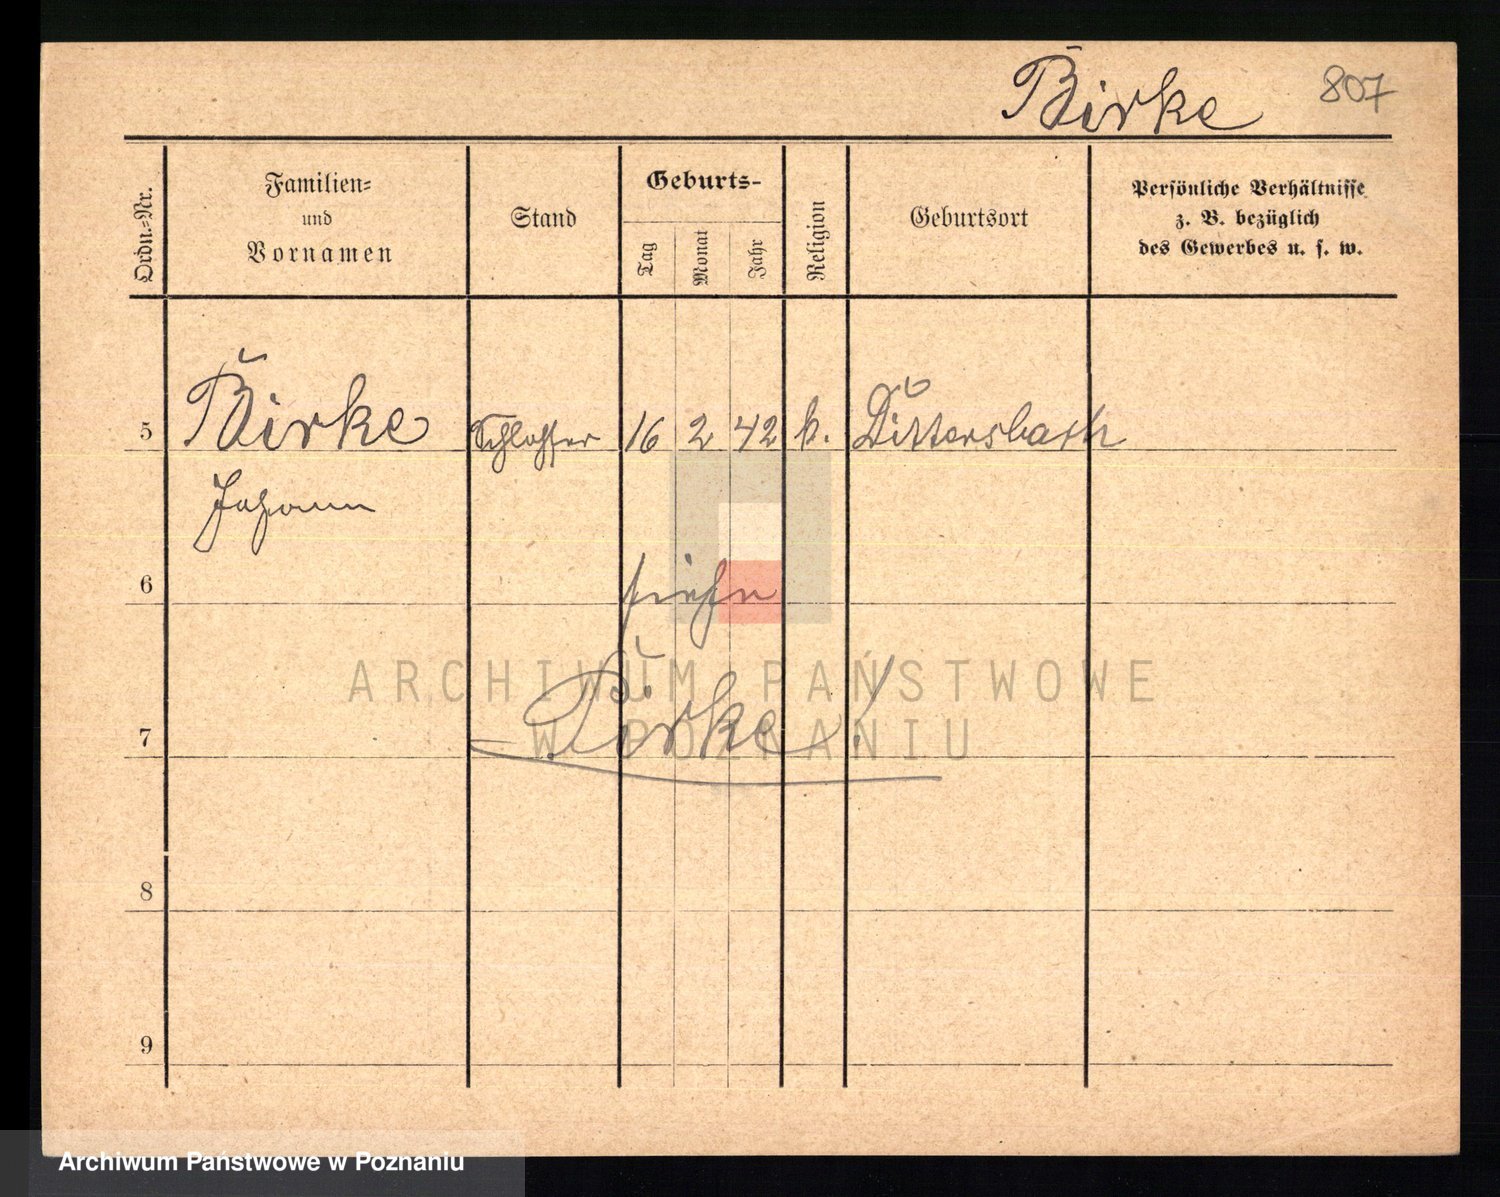 Birke 807
Ordn.-Nr.
Familien-
und
Vornamen
Stand
Geburts-
Tag
Monat
Jahr
Religion
Geburtsort
Persönliche Verhältnisse
z. B. bezüglich
des Gewerbes u. s. w.
5 Birke Schlosser 16 2 42 k. Dittersbach
Johann
6 siehe
ARCHIWUM PAŃSTWOWE
W POZNANIU
7 Pörke!
8
9
Archiwum Państwowe w Poznaniu